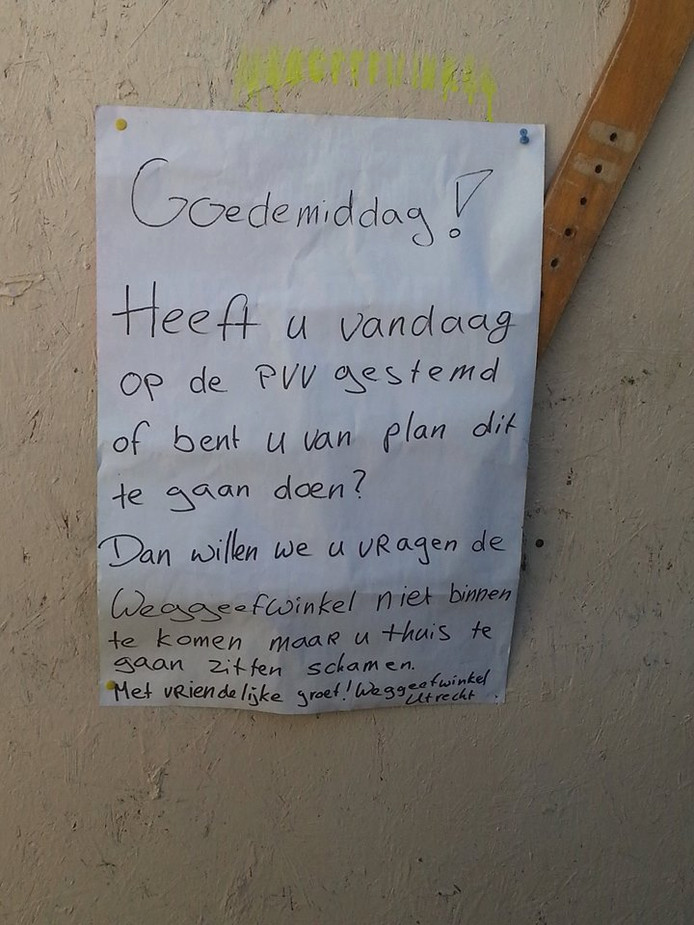 Goedemiddag!
Heeft u vandaag
op de PVV gestemd
of bent u van plan dit
te gaan doen?
Dan willen we u vRagen de
Weggeefwinkel niet binnen
te komen maaR u thuis te
gaan zitten schamen.
Met vRiendelijke groet! Weggeefwinkel
Utrecht.